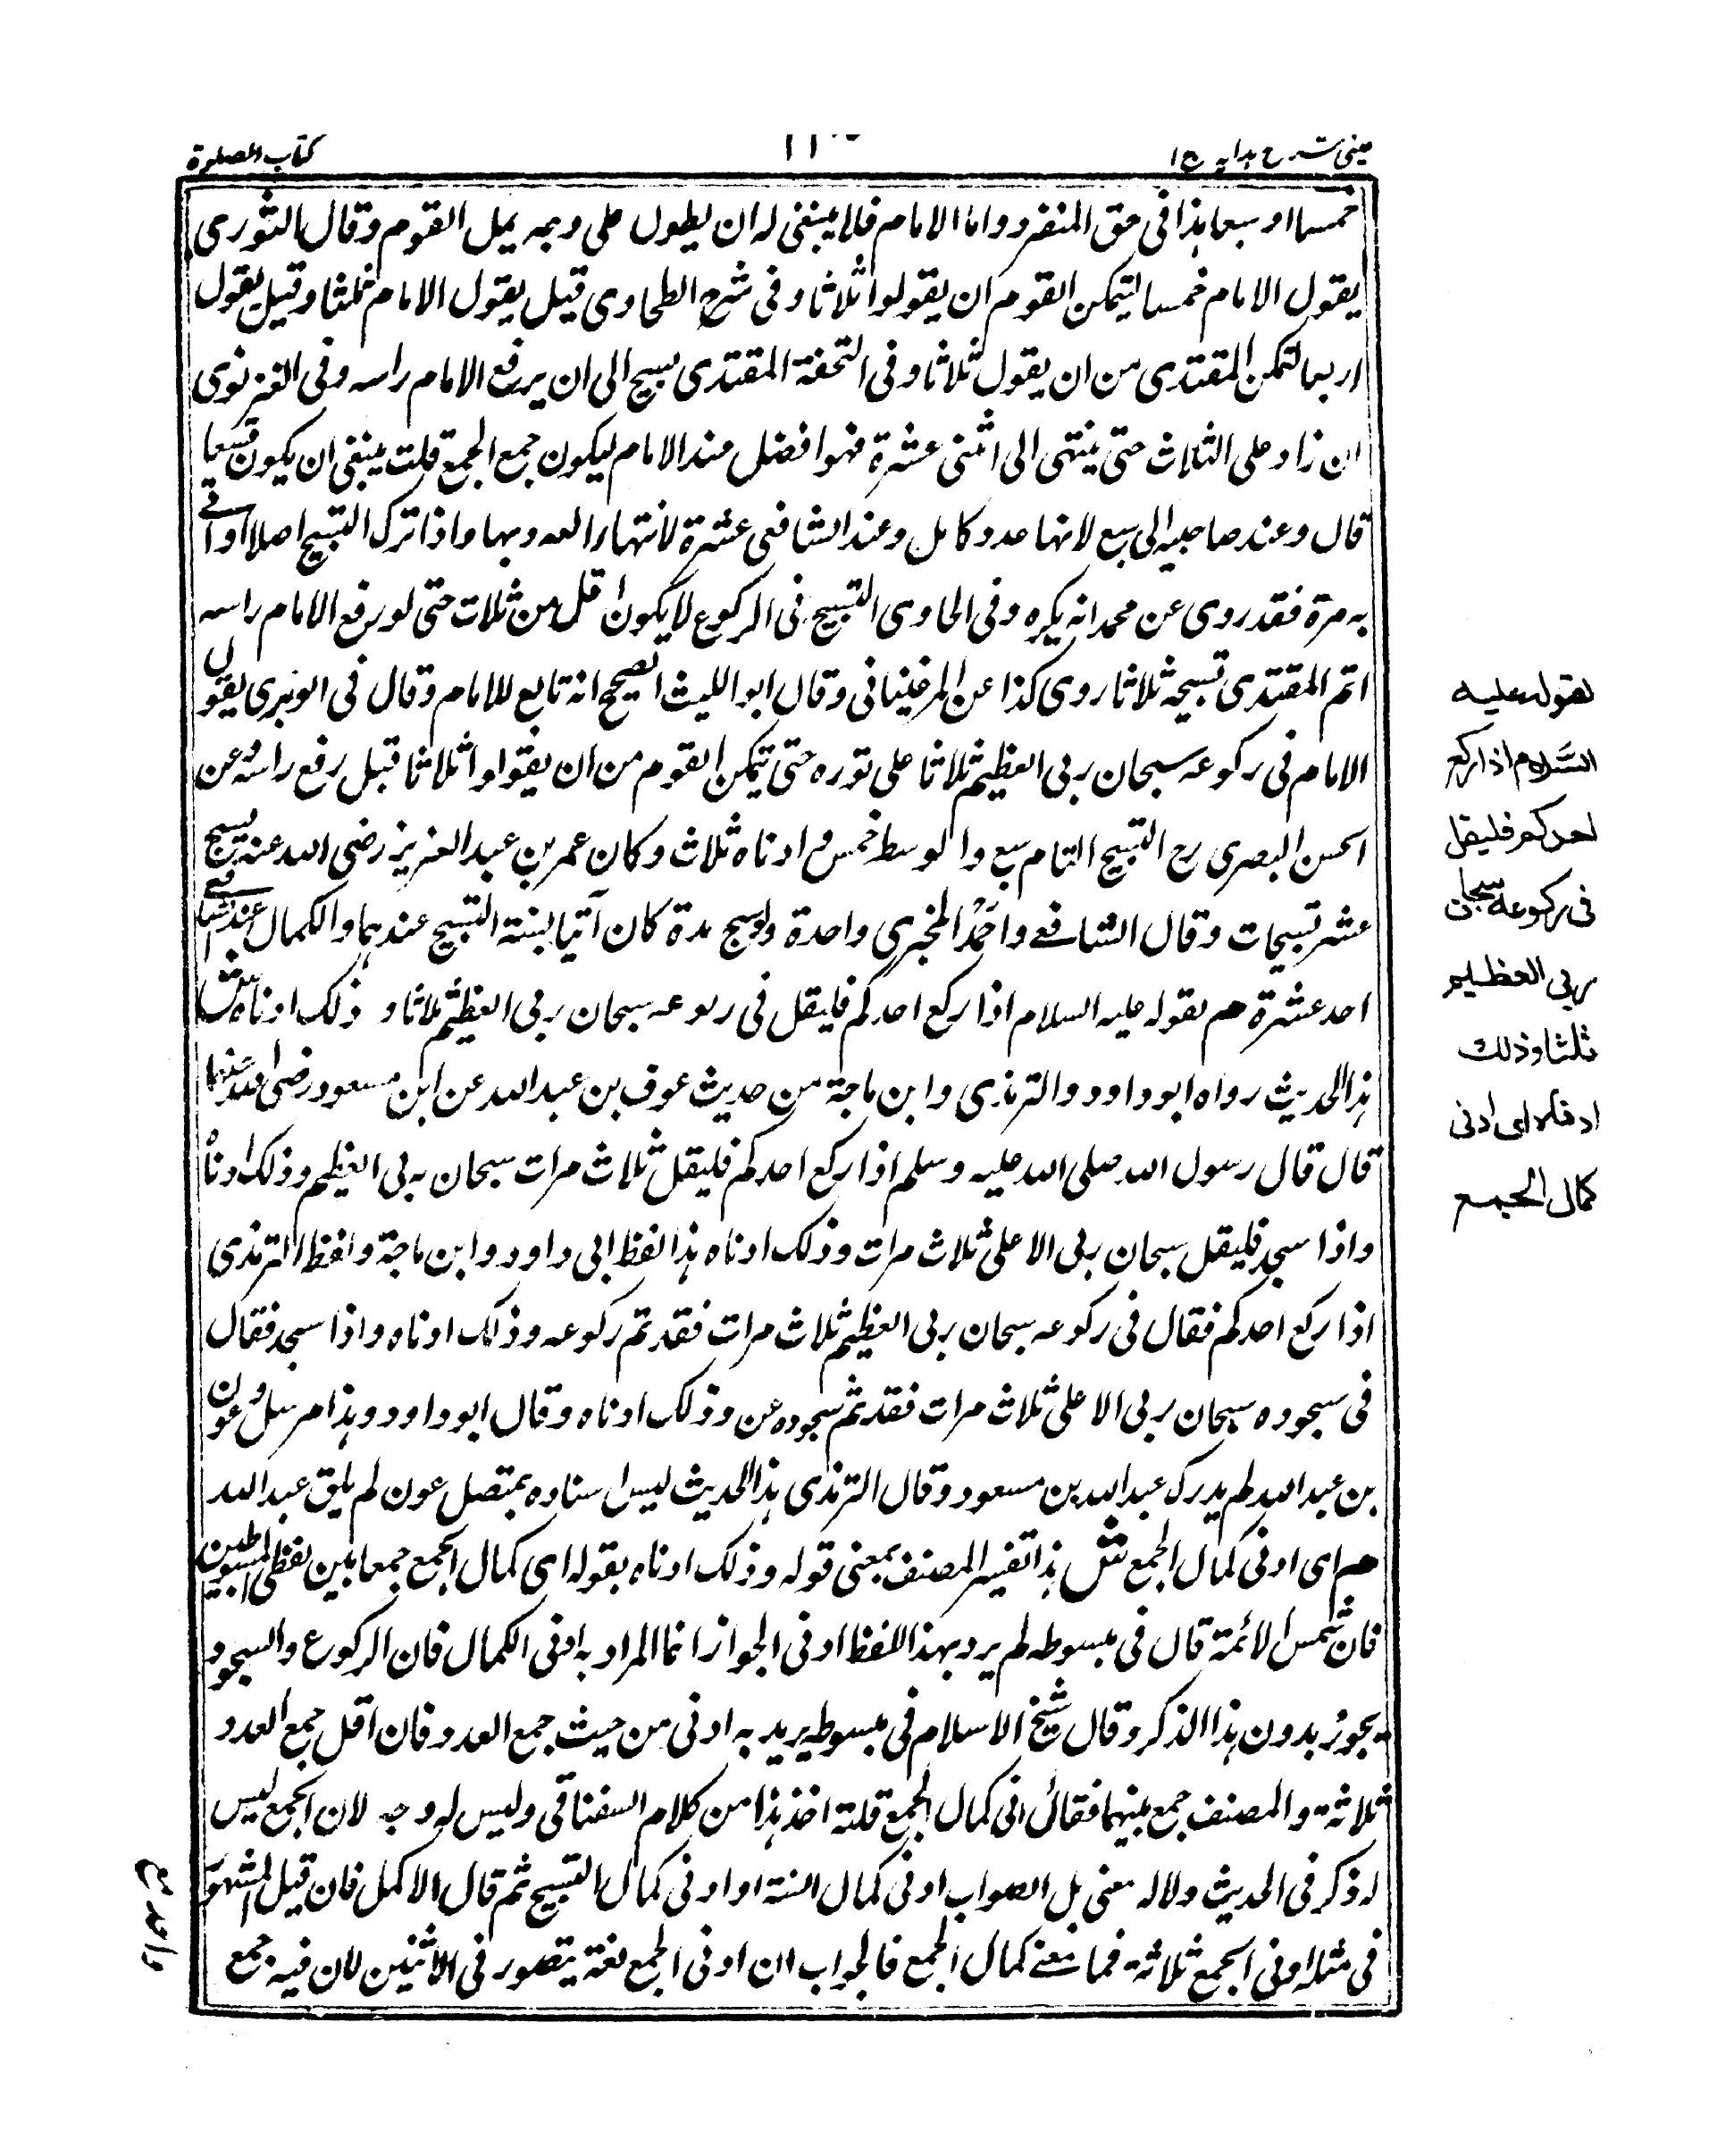 عینی شرح ہدایہ ج ١
کتاب الصلوة
خمسا او سبعا ہذا فی حق المنفرد واما الامام فلا ینبغی لہ ان یطول علی وجہ یمل القوم وقال الثوری
یقول الامام خمسا لیتمکن القوم ان یقولوا ثلاثا وفی شرح الطحاوی قیل یقول الامام ثلثا وقیل یقول
اربعا لتمکن المقتدی من ان یقول ثلاثا وفی التحفة المقتدی یسبح الی ان یرفع الامام راسہ وفی الغزنوی
ان زاد علی الثلاث حتی ینتہی الی اثنی عشرة فہو افضل عند الامام لیکون جمع الجمع قلت ینبغی ان یکون تسعا
قال وعند صاحبیہ الی سبع لانہا عدد کامل وعند الشافعی عشرة لانتہاء العدد بہا واذا ترک التسبیح اصلا او اتی
بہ مرة فقد روی عن محمد انہ یکرہ وفی الحاوی التسبیح فی الرکوع لا یکون اقل من ثلاث حتی لو رفع الامام راسہ
اتم المقتدی تسبیحہ ثلاثا روی کذا عن المرغینانی وقال ابو اللیث الصحیح انہ تابع للامام وقال فی الوبری یقول
الامام فی رکوعہ سبحان ربی العظیم ثلاثا علی تورہ حتی یتمکن القوم من ان یقولوا ثلاثا قبل رفع راسہ وعن
الحسن البصری رح التسبیح التام سبع والوسط خمس وادناہ ثلاث وکان عمر بن عبد العزیز رضی اللہ عنہ یسبح
عشر تسبیحات وقال الشافعی واحمد المجزی واحدة ولو سبح مدة کان آتیا بسنة التسبیح عندہما والکمال عند الشافعی
احد عشرة م بقولہ علیہ السلام اذا رکع احدکم فلیقل فی رکوعہ سبحان ربی العظیم ثلاثا و ذلک ادناہ ش
ہذا الحدیث رواہ ابو داود والترمذی وابن ماجة من حدیث عوف بن عبد اللہ عن ابن مسعود رضی اللہ عنہما
قال قال رسول اللہ صلی اللہ علیہ وسلم اذا رکع احدکم فلیقل ثلاث مرات سبحان ربی العظیم وذلک ادناہ
واذا سجد فلیقل سبحان ربی الاعلی ثلاث مرات وذلک ادناہ ہذا لفظ ابی داود وابن ماجة ولفظ الترمذی
اذا رکع احدکم فقال فی رکوعہ سبحان ربی العظیم ثلاث مرات فقد تم رکوعہ وذلک ادناہ واذا سجد فقال
فی سجودہ سبحان ربی الاعلی ثلاث مرات فقد تم سجودہ عن وذلک ادناہ وقال ابو داود وہذا مرسل وعون
بن عبد اللہ لم یدرک عبد اللہ بن مسعود وقال الترمذی ہذا الحدیث لیس اسنادہ بمتصل عون لم یلق عبد اللہ
م ای ادنی کمال الجمع ش ہذا تفسیر المصنف بمعنی قولہ وذلک ادناہ بقولہ ای کمال الجمع جمعا بین لفظی المبسوطین
فان شمس الائمة قال فی مبسوطہ لم یرد بہذا اللفظ ادنی الجواز انما المراد بہ ادنی الکمال فان الرکوع والسجود
یجوز بدون ہذا الذکر وقال شیخ الاسلام فی مبسوطہ یرید بہ ادنی من حیث جمع العدد فان اقل جمع العدد
ثلاثة والمصنف جمع بینہما فقال ادنی کمال الجمع قلتہ اخذ ہذا من کلام السغناقی ولیس لہ وجہ لان الجمع لیس
لہ ذکر فی الحدیث ولا لہ معنی بل الصواب ادنی کمال السنة او ادنی کمال التسبیح ثم قال الاکمل فان قیل المشہور
فی مثلہ ادنی الجمع ثلاثة فما معنی کمال الجمع فالجواب ان ادنی الجمع لغة یتصور فی الاثنین لان فیہ جمع
لقولہ علیہ
السّلام اذا رکع
احدکم فلیقل
فی رکوعہ سبحان
ربی العظیم
ثلثا وذلک
ادناہ ای ادنی
کمال الجمع